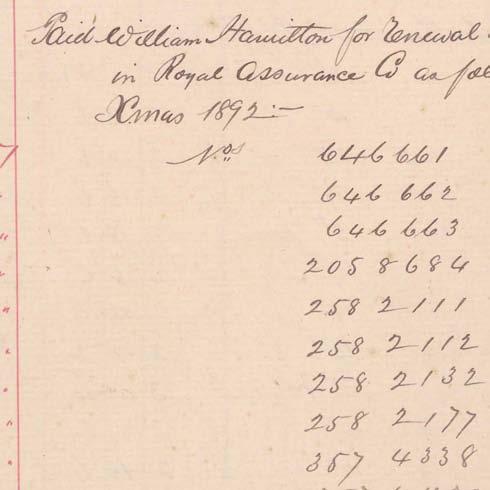 Paid William Hamilton for renewal
in Royal Assurance Co as fol
Xmas 1892:—
Nos 646 661
646 662
646 663
205 8684
258 2111
258 2112
258 2132
258 2177
357 4338